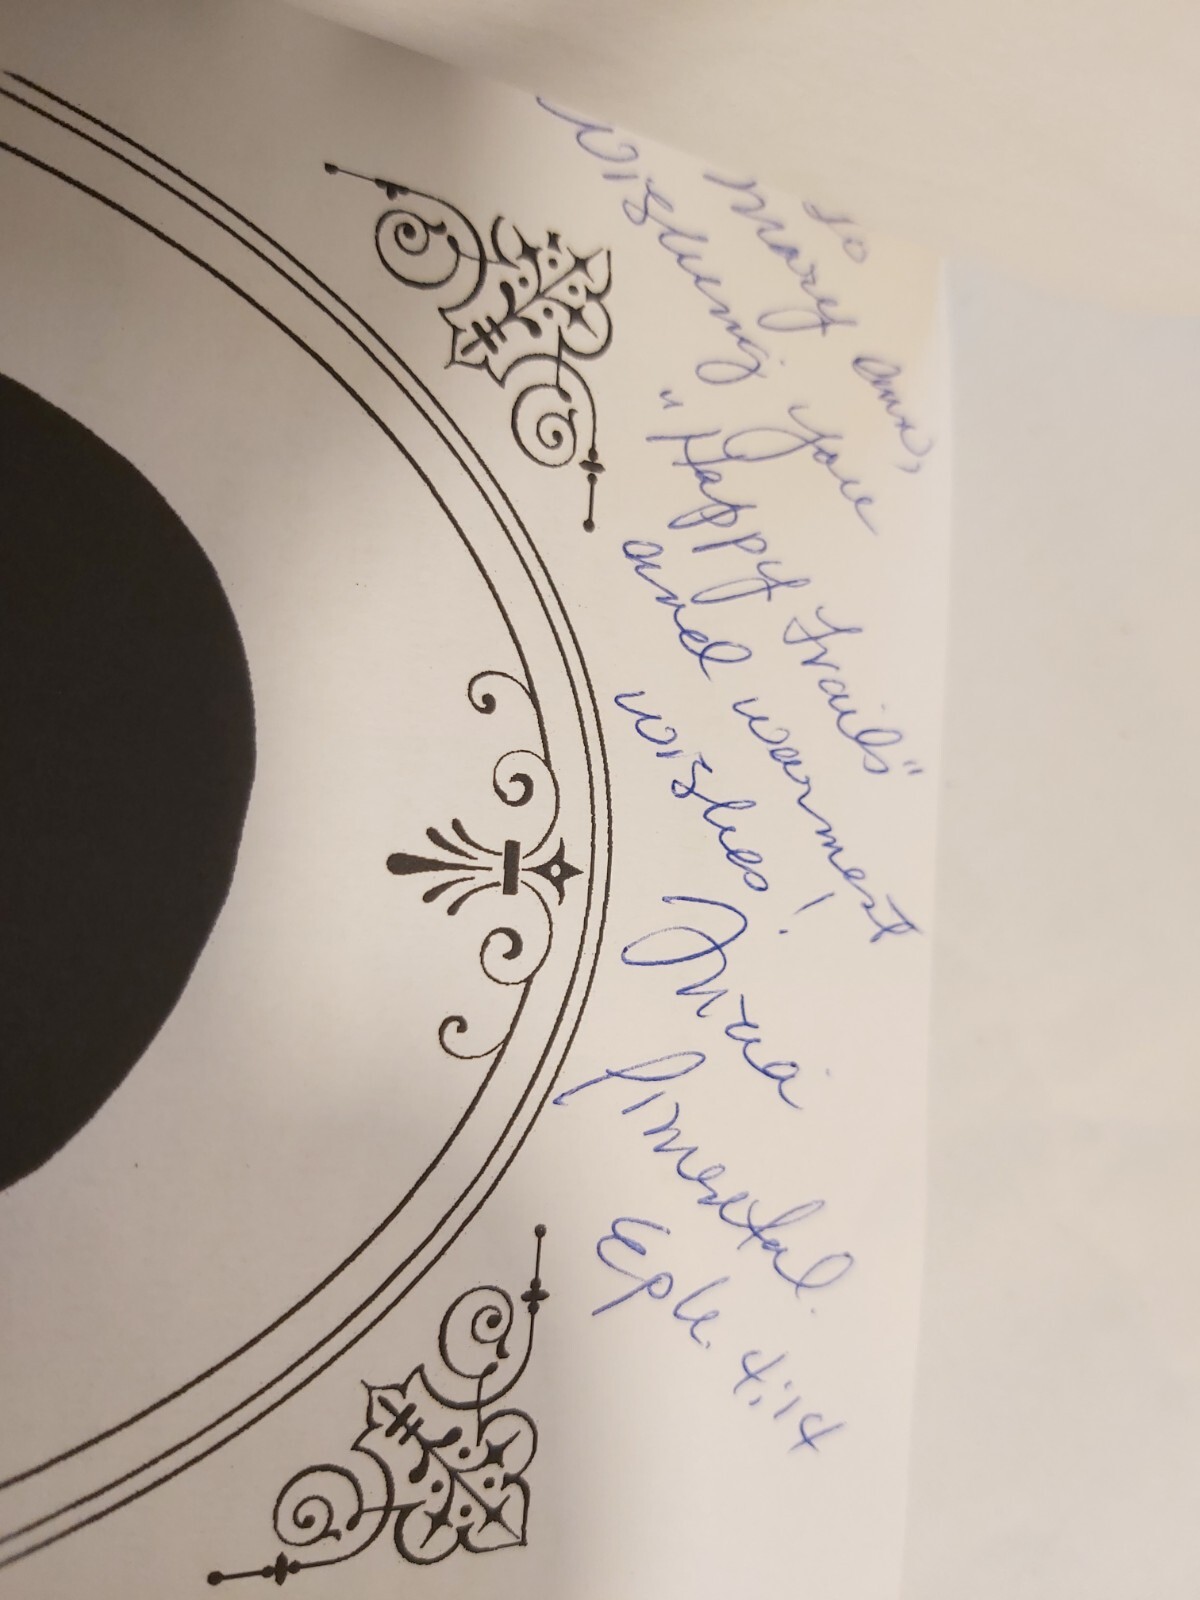 To
Mary Ann,
Wishing you
"Happy Trails"
and warmest
wishes!
Pimental.
Eph. 4:14